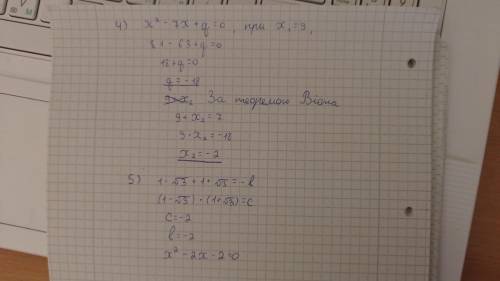 4) x² - 7x + q = 0, при x₁ = 9,
81 - 63 + q = 0
18 + q = 0
q = -18
За теоремою Вієта
9 + x₂ = 7
9 · x₂ = -18
x₂ = -2
5) 1 - √3 + 1 + √3 = -b
(1 - √3) · (1 + √3) = c
c = -2
b = -2
x² - 2x - 2 = 0